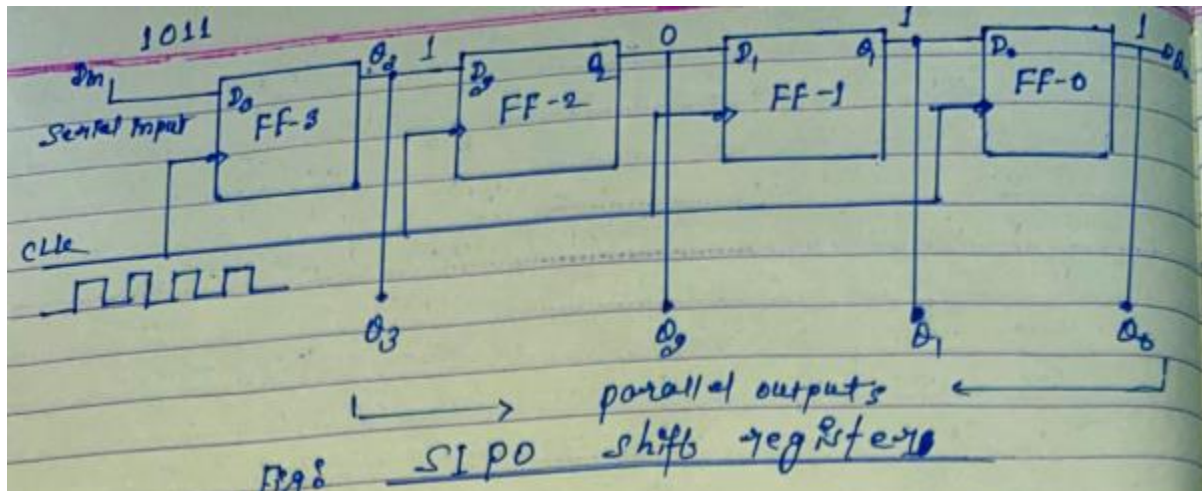 1011
Din
Serial Input
D3
FF-3
Q3
1
D2
FF-2
Q
0
D1
FF-1
Q1
1
D0
FF-0
1
CLK
Q3
Q2
Q1
Q0
parallel outputs
Fig: SIPO shift register